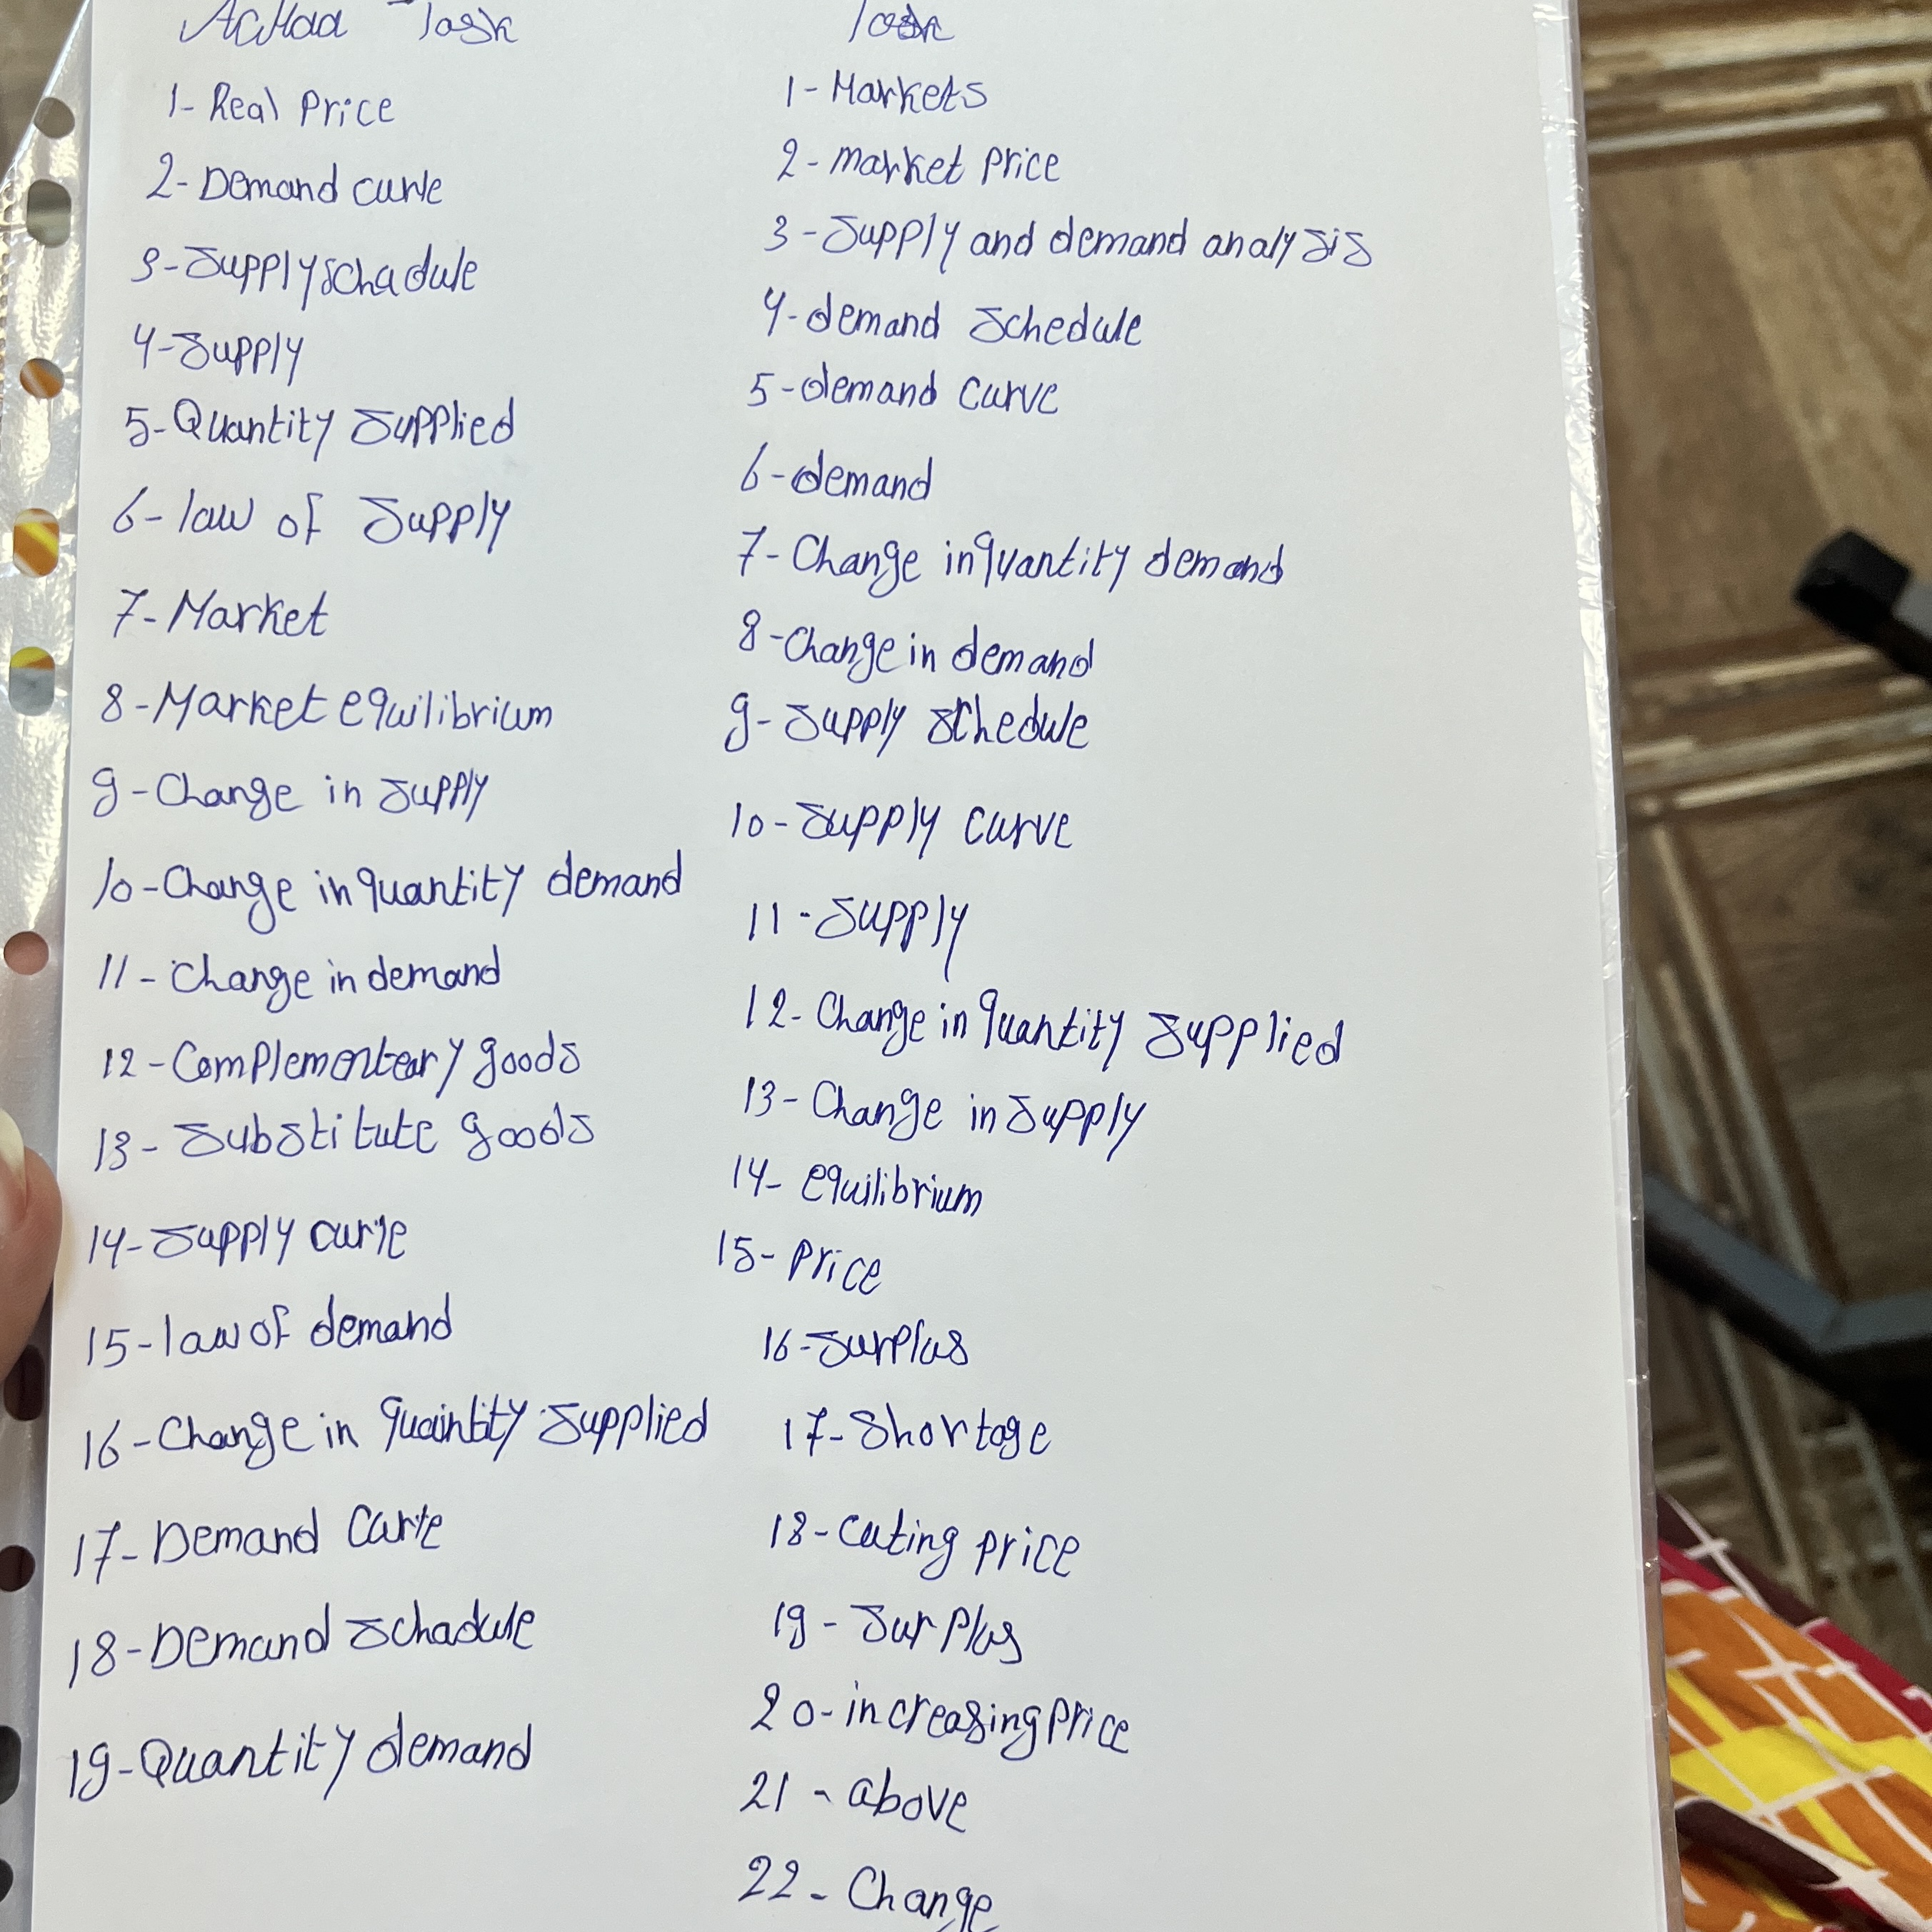 Task
1- Real Price
2- Demand curve
3- Supply schadule
4- Supply
5- Quantity Supplied
6- law of Supply
7- Market
8- Market equilibrium
9- Change in Supply
10- Change in quantity demand
11- Change in demand
12- Complementeary goods
13- Substitute goods
14- Supply curve
15- law of demand
16- Change in quaintity Supplied
17- Demand Carve
18- Demand Schadule
19- Quantity demand
Task
1- Markets
2- market price
3- Supply and demand analysis
4- demand Schedule
5- demand curve
6- demand
7- Change in quantity demand
8- Change in demand
9- Supply Schedule
10- Supply curve
11- Supply
12- Change in quantity Supplied
13- Change in Supply
14- equilibrium
15- Price
16- Surplus
17- Shortage
18- cuting price
19- Surplus
20- increasing price
21- above
22- Change